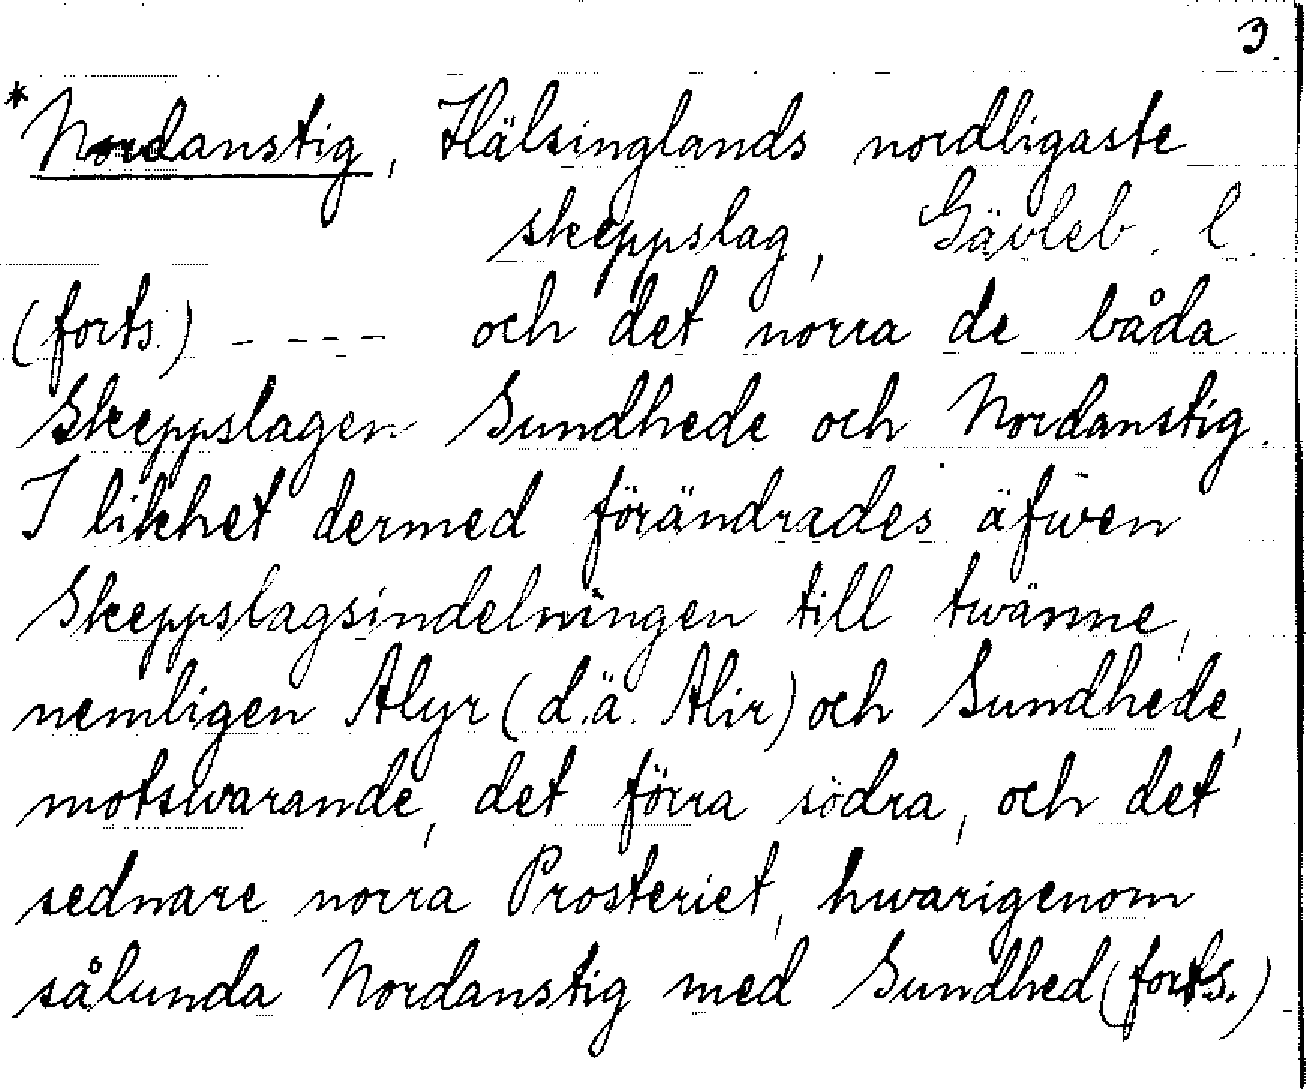 3.
*Nordanstig, Hälsinglands nordligaste
skeppslag, Gävleb. l.
(forts.) - - - - och det norra de båda
Skeppslagen Sundhede och Nordanstig.
I likhet dermed förändrades äfwen
Skeppslagsindelningen till twänne,
nemligen Alyr (d.ä. Alir) och Sundhede,
motswarande, det förra södra, och det
sednare norra Prosteriet, hwarigenom
sålunda Nordanstig med Sundhed (forts.)